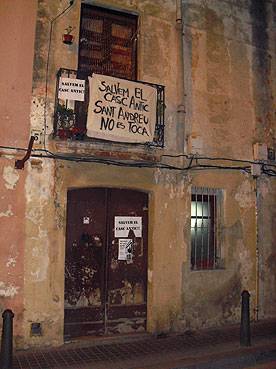 SALVEM EL
CASC ANTIC
SALVEM EL
CASC ANTIC
SANT ANDREU
NO ES TOCA
SALVEM EL
CASC ANTIC!